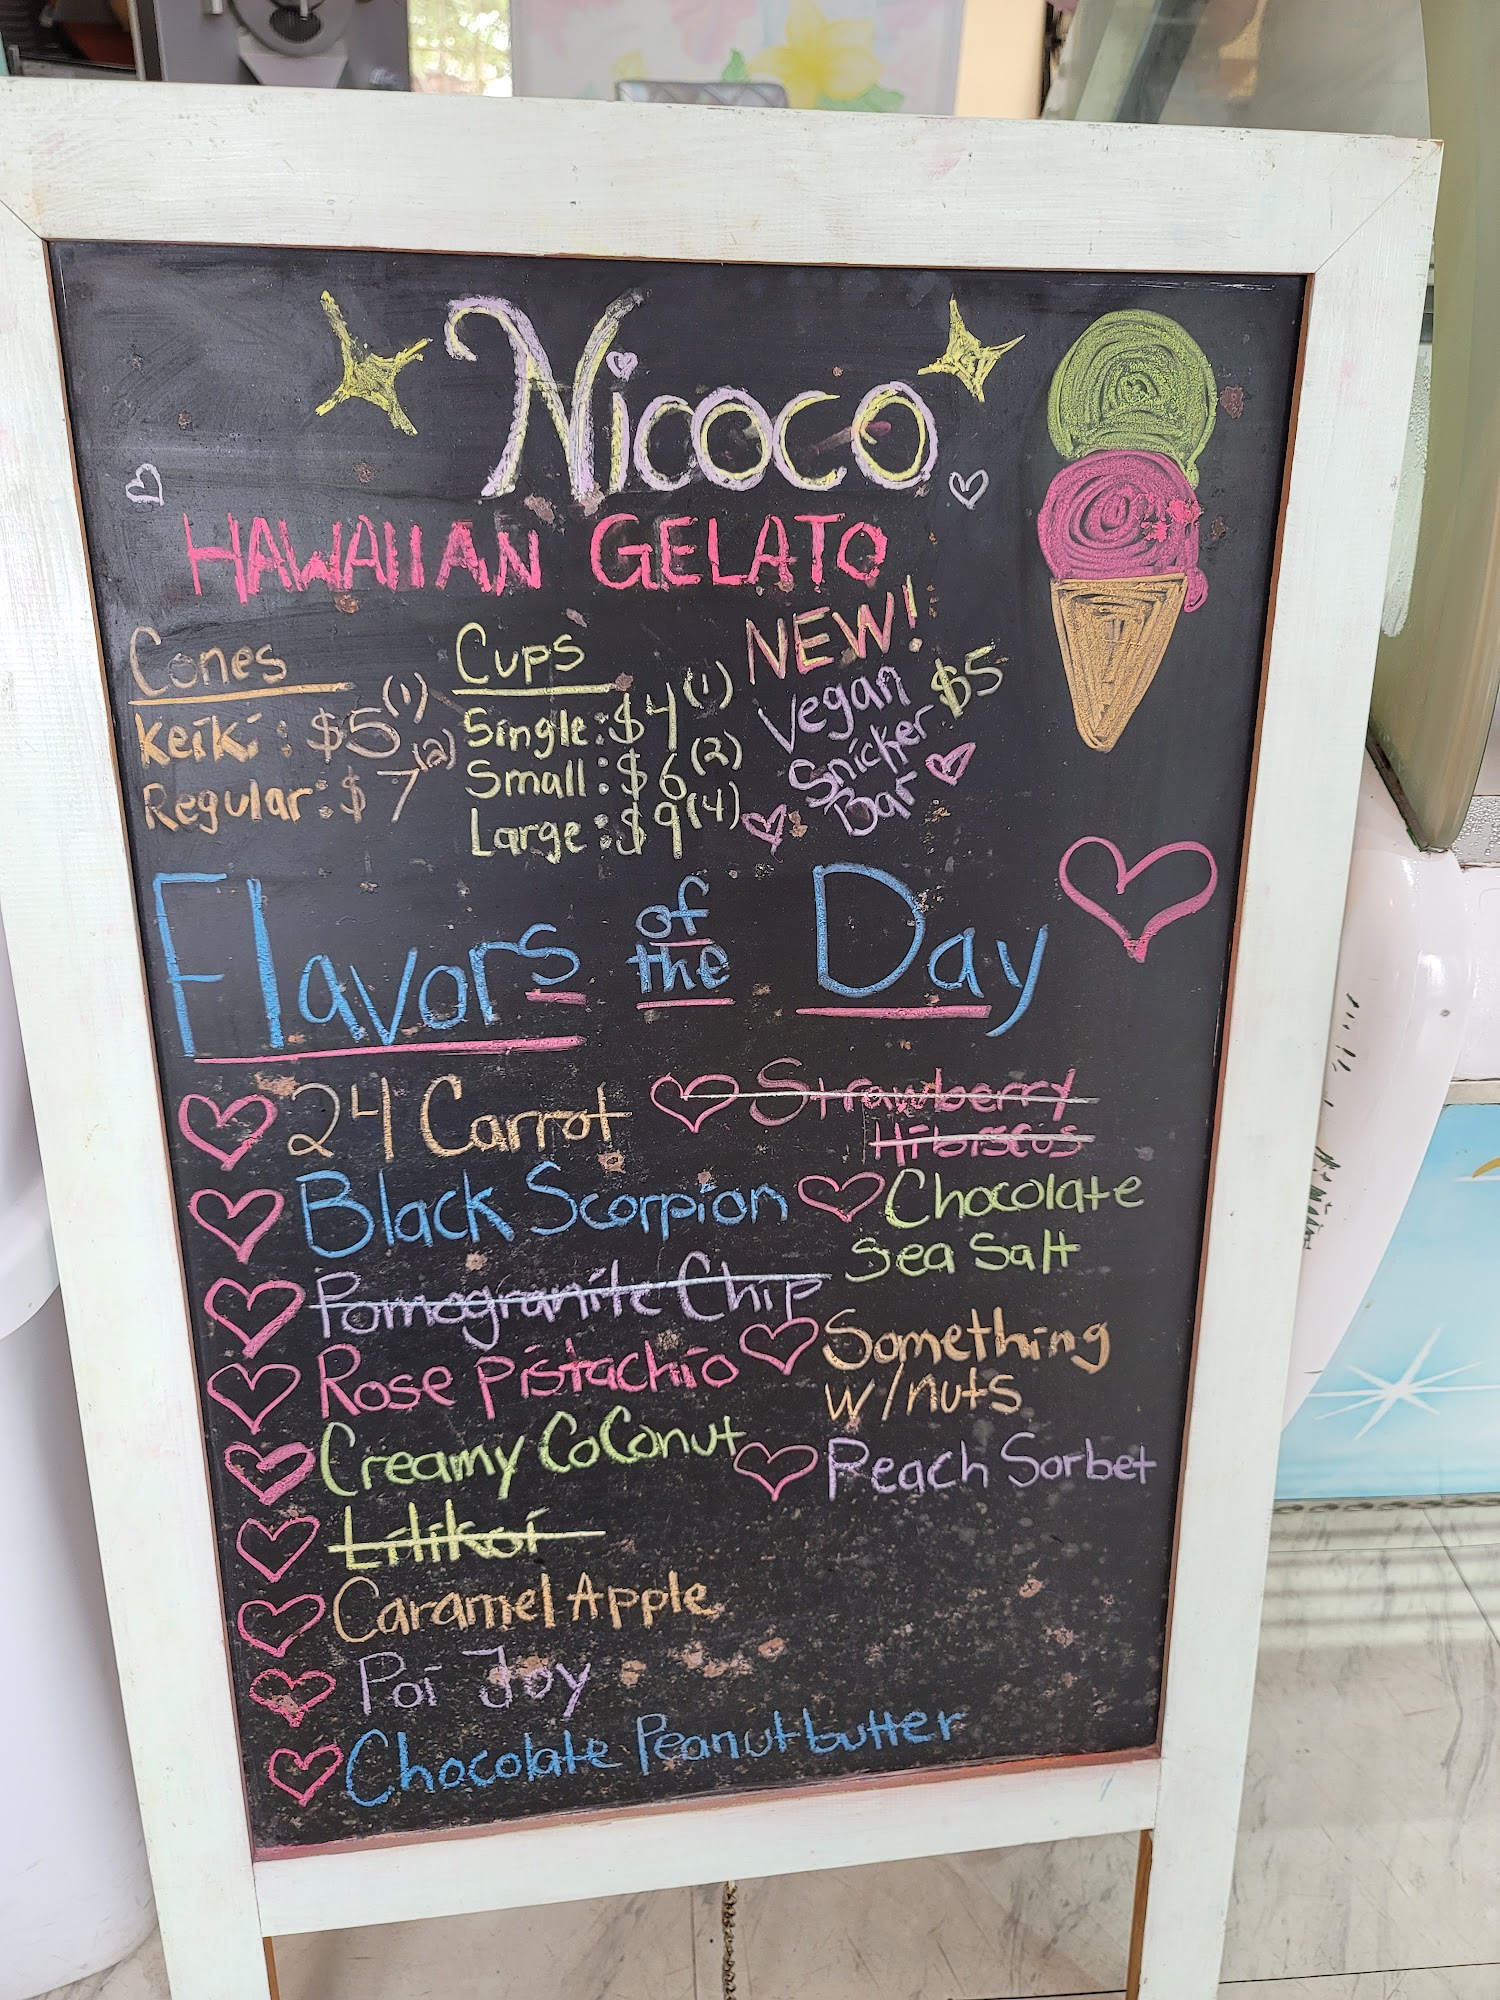 Nicoco
HAWAIIAN GELATO
Cones
Keiki: $5 (1)
Regular: $7 (2)
Cups
Single: $4 (1)
Small: $6 (2)
Large: $9 (4)
NEW!
Vegan $5
Snicker
Bar
Flavors of the Day
24 Carrot
Black Scorpion
Pomogranite Chip
Rose Pistachio
Creamy CoConut
Lilikoi
Caramel Apple
Poi Joy
Chocolate Peanutbutter
Strawberry
Hibiscus
Chocolate
Sea Salt
Something
w/nuts
Peach Sorbet